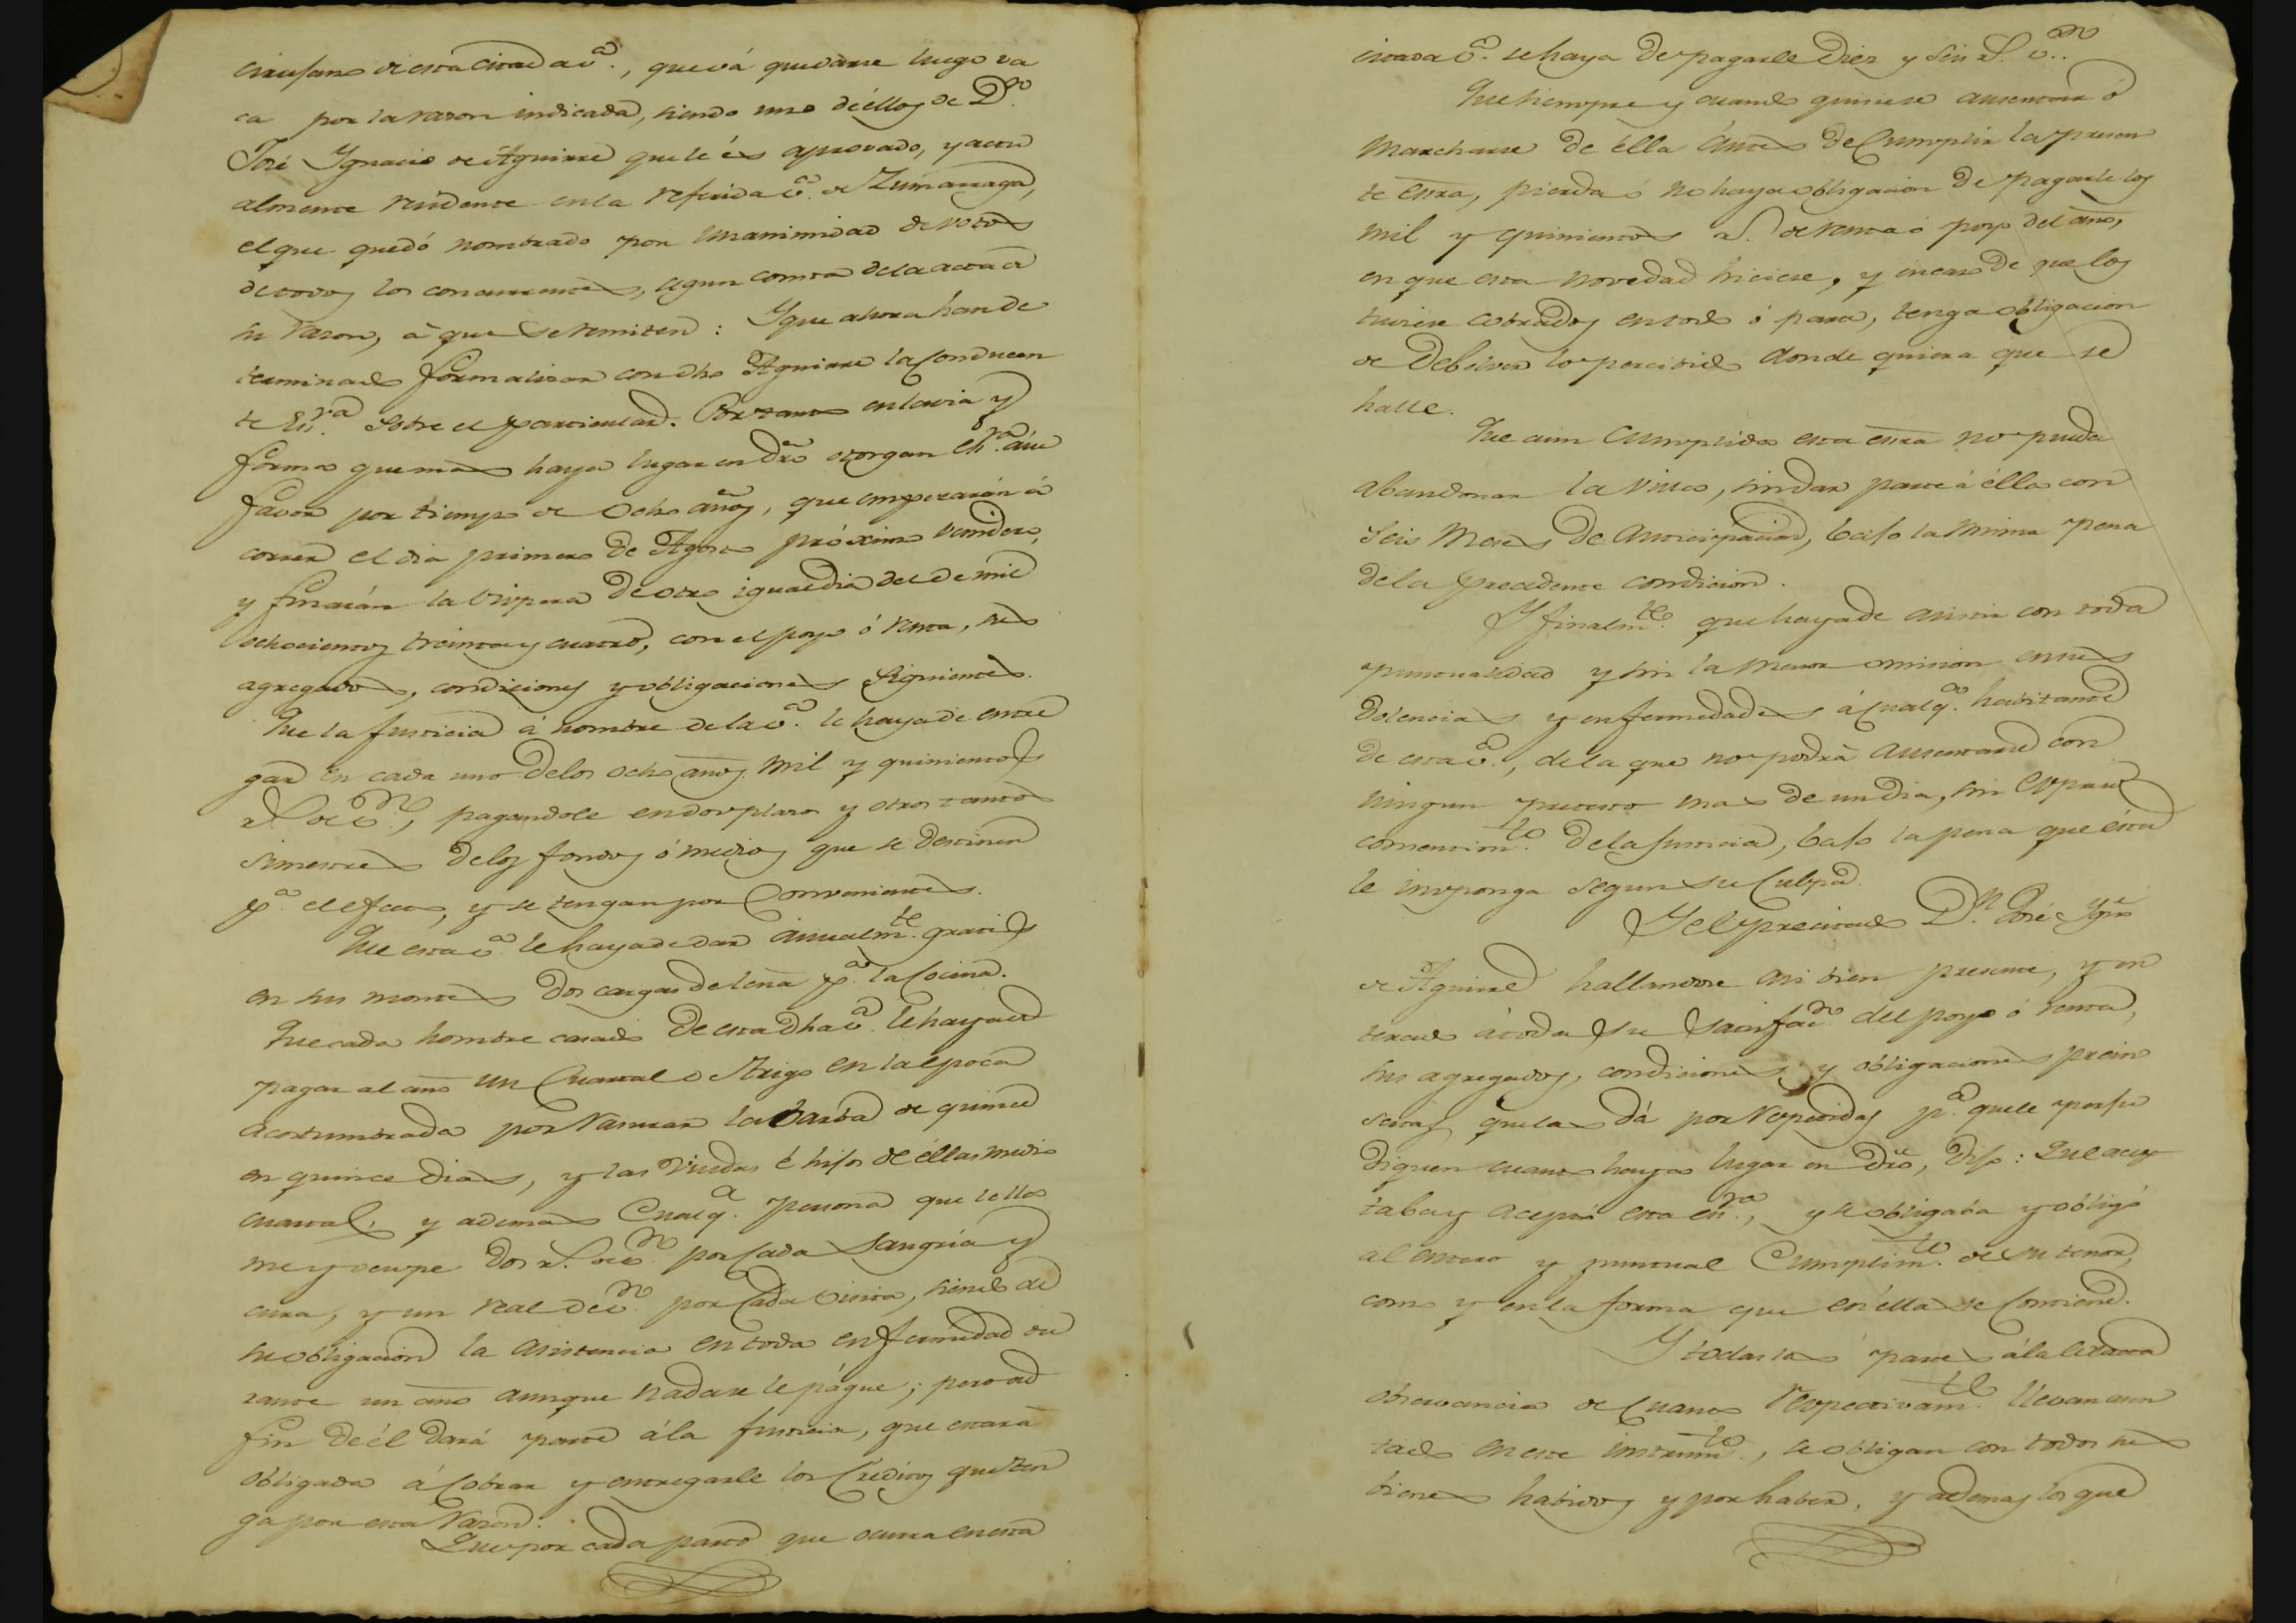 cirujano de esta citada v.ª, que vá quedarse luego va
ca por la razon indicada, siendo uno de éllos de D.n
José Ygnacio de Aguirre que le és aprovado, y actu
almente residente en la referida v.ª de Zumarraga,
el que quedó nombrado por unanimidad de votos
de todos los concurrentes, segun consta de la acta de
su razon, á que se remiten: Y que ahora han de
terminado formalizar con dho Aguirre la conducen
te Es.ra sobre el particular. Por tanto en la via y
forma que mas haya lugar en dro otorgan Es.ra á su
favor por tiempo de ocho años, que empezarán á
correr el dia primero de Agosto próximo venidero,
y finarán la vispera de otro igual dia del de mil
ochocientos treinta y cuatro, con el poyo ó renta, sus
agregados, condiciones y obligaciones siguientes.
Que la Justicia á nombre de la v.ª le haya de entre
gar en cada uno de los ocho años mil y quinientos
r.s de v.on, pagandole en dos plazos y otros tantos
simestres de los fondos ó medios que se destinen
p.ª el efecto, y se tengan por convenientes.
Que esta v.ª le haya de dar anualm.te gratis
en sus montes dos cargas de leña p.ª la cocina.
Que cada hombre casado de esta dha v.ª le haya de
pagar al año un Cuartal de trigo en la epoca
acostumbrada por rasurar la barba de quince
en quince dias, y las viudas é hijos de éllas medio
cuartal, y ademas Cualq.ª persona que le lla
me y ocupe dos r.s de v.on por cada sangría y
cura, y un real de v.on por cada visita, siendo de
su obligacion la asistencia en toda enfermedad du
rante un año aunque nada se le págue; pero al
fin de él dará parte á la justicia, que estará
obligada á cobrar y entregarle los créditos que ten
ga por esta razon.
Que por cada parto que ocurra en esta
citada v.ª se haya de pagarle diez y seis r.s v.on
Que siempre y cuando quisiese ausentarse ó
marcharse de élla ántes de cumplir la presen
te esṝa, pierda ó no haya obligacion de pagarle los
mil y quinientos r.s de renta ó poyo del año,
en que esta novedad hiciese, y en caso de que los
tuviese cobrados en todo ó parte, tenga obligacion
de debolver lo percibido donde quiera que se
halle.
Que aun cumplida esta esṝa no pueda
abandonar la villa, sin dar parte á élla con
seis meses de anticipacion, bajo la misma pena
de la precedente condicion.
Y finalm.te que haya de asistir con toda
puntualidad y sin la menor omision en sus
dolencias y enfermedades á cualq.ª habitante
de esta v.ª, de la que no podrá ausentarse con
ningun pretesto mas de un dia, sin espreso
consentim.to de la justicia, bajo la pena que ésta
le imponga segun su culpa.
Y el precitado D.n José Ygn.º
de Aguirre hallandose asi bien presente, y en
terado á toda su satisfac.on del poyo ó renta,
sus agregados, condiciones y obligaciones prein
sertas, que las dá por repetidas p.ª que le perju
diquen cuanto haya lugar en dro, dijo: Que acep
taba y aceptó esta es.ra, y se obligaba y obligó
al entero y puntual cumplim.to de su tenor,
como y en la forma que en élla se contiene.
Y todas las partes á la exacta
observancia de cuanto respectivam.te llevan asen
tado en este instrum.to, se obligan con todos sus
bienes habidos y por haber, y ademas los que